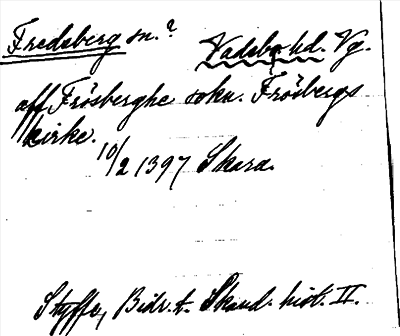 Fredsberg sn.? Vadsbo hd. Vg.
aff Frösberghe sokn. Frösbergs
kirke.
10/2 1397 Skara.
Styffe, Bidr. t. Skand. hist. II.